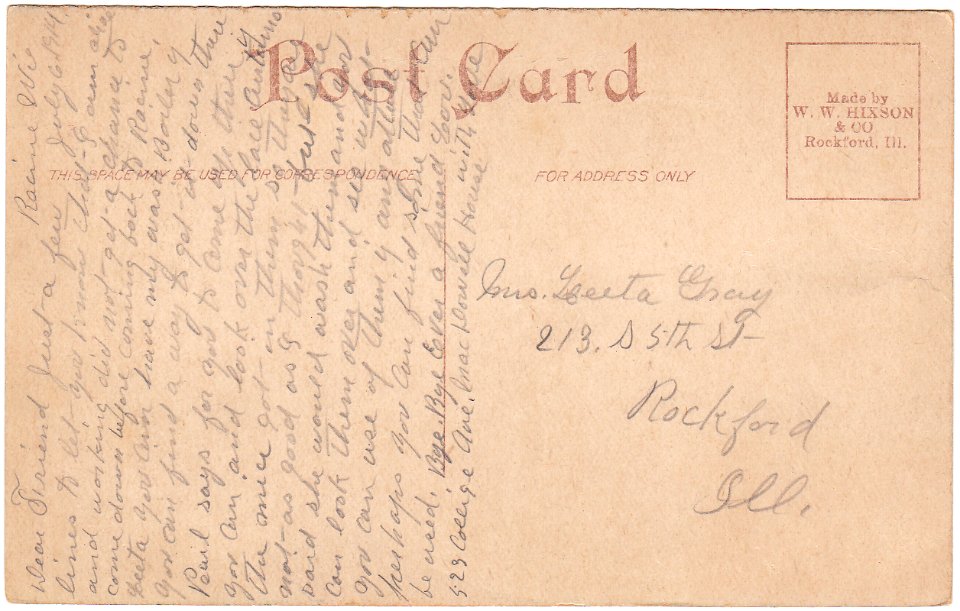 Post Card
THIS SPACE MAY BE USED FOR CORRESPONDENCE
FOR ADDRESS ONLY
Made by
W. W. HIXSON
& CO
Rockford, Ill.
Racine Wis
Dear Friend Just a few July 6 1914
lines to let you know that I am
and working did not get a chance to
come down before coming back to Racine,
Leeta you can have my wash Boiler if
you can find a way to get it down there
Pearl says for you to come up there if
you can and look over the lace curtains
the mice got in them so they are
not as good as I thought but she
said she would wash them and you
can look them over and see what
you can use of them if any at all
perhaps you can find some that can
be used. Bye Bye Ever a friend Love.
529 College Ave. MacDowell House with
Mrs. Leeta Gray
213. S 5th St
Rockford
Ill.